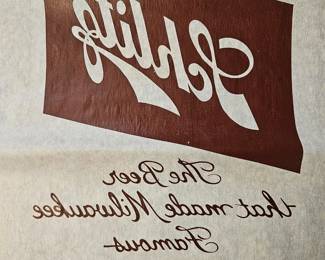 Schlitz
The Beer
that made Milwaukee
Famous